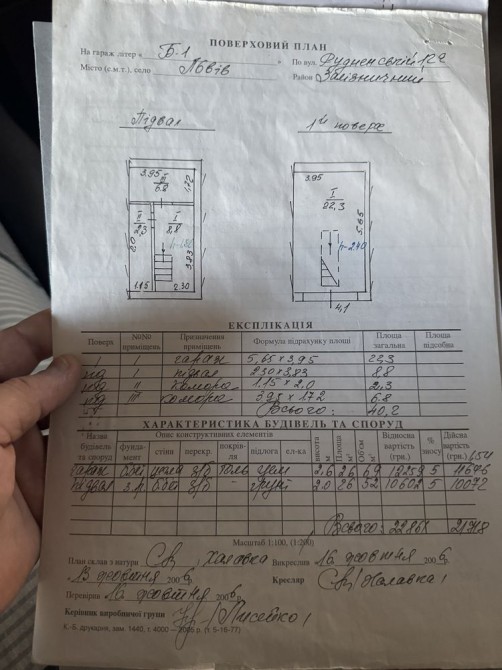 ПОВЕРХОВИЙ ПЛАН
На гараж літер « Б-1 » По вул.
Місто (с.м.т.), село Львів Район Залізничний
Підвал 1й поверх
3.95 3.95
III 6.8 1,72 I 22,3
II 2,3 I 8,8 5.65
2,0 3.83 h-2.40
1.15 2.30 4,1
ЕКСПЛІКАЦІЯ
Поверх №№ приміщень Призначення приміщень Формула підрахунку площі Площа загальна Площа підсобна
1 гараж 5,65 x 3,95 22,3
під I підвал 2.30 x 3,83 8.8
під II комора 1.15 x 2,0 2,3
під III комора 3.95 x 1.72 6.8
Всього: 40,2
ХАРАКТЕРИСТИКА БУДІВЕЛЬ ТА СПОРУД
Назва будівель та споруд Опис конструктивних елементів висота м Площа м² Об'єм м³ Відносна вартість (грн.) % зносу Дійсна вартість (грн.)
фундамент стіни перекр. покрівля підлога ел-ка
Гараж з/б толь цем 2,6 26 69 5 11676
Підвал з/б - ґрунт 2.0 26 52 10602 5 10072
Всього:
Масштаб 1:100, (1:200)
План склав з натури Халавка Викреслив 16 жовтня 2006
13 жовтня 2006 Кресляр Халавка
Перевірив 16 жовтня 2006 р.
Керівник виробничої групи Лисейко
К.-Б. друкарня, зам. 1440, т. 4000